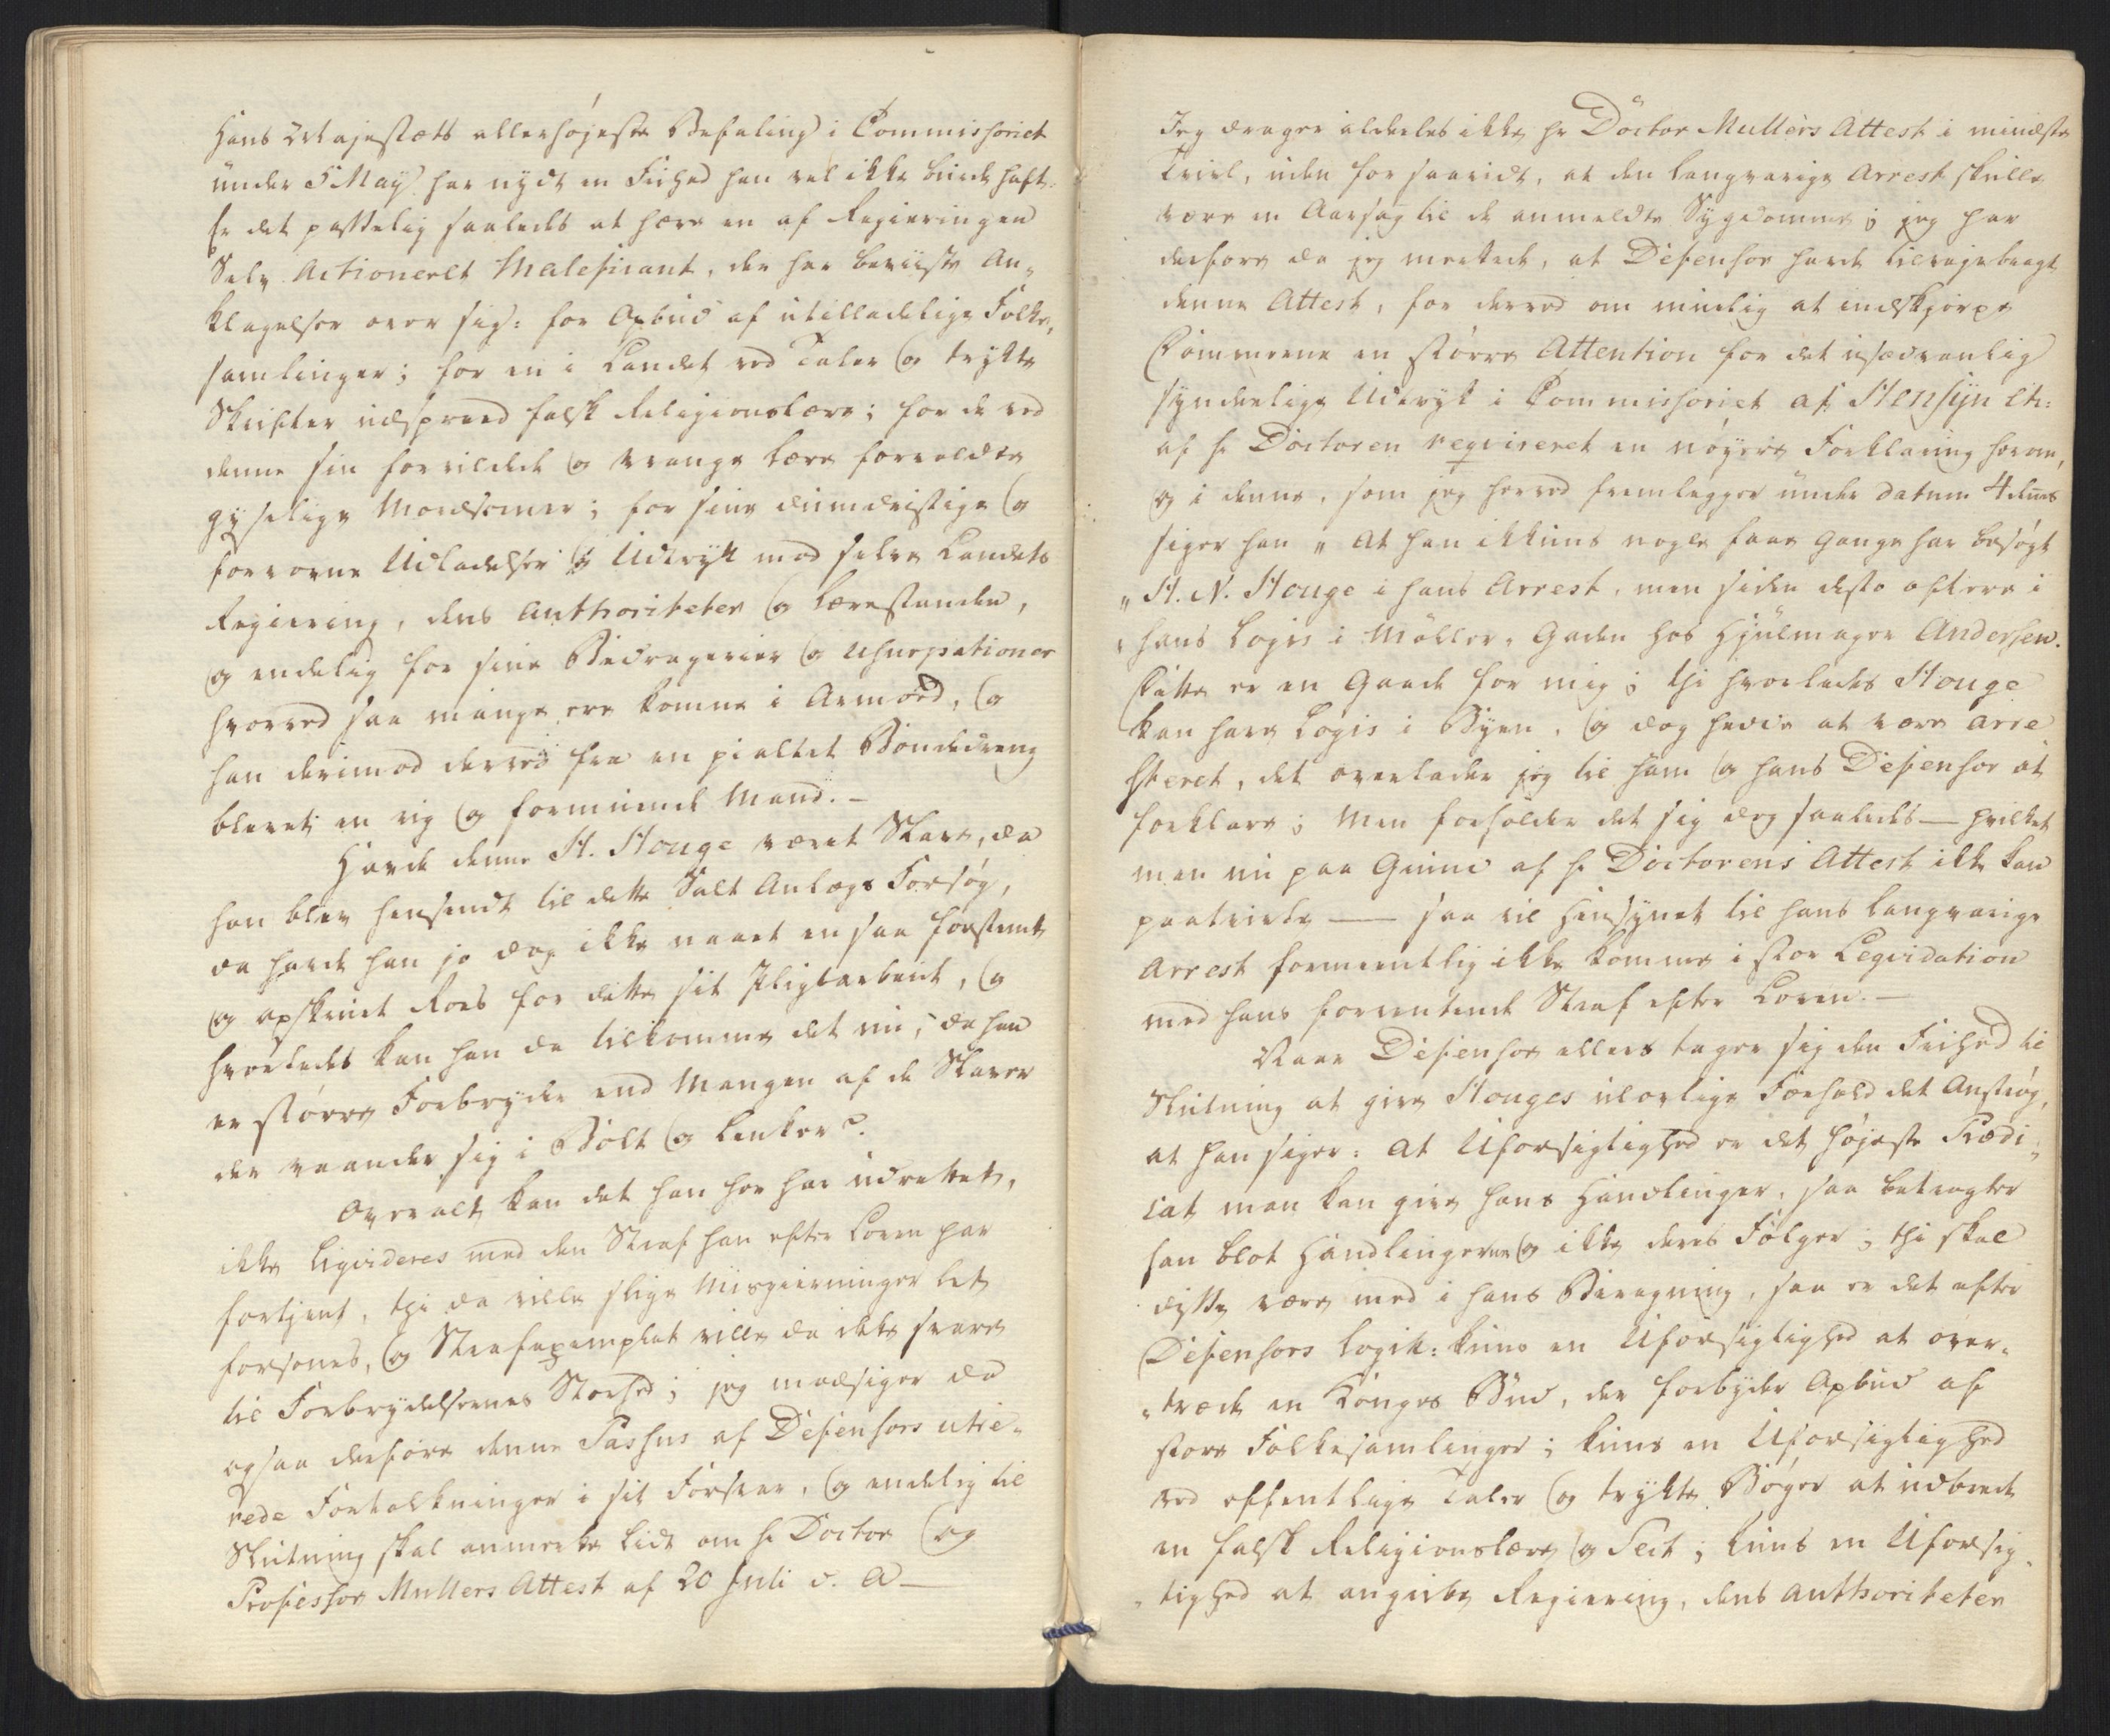 Hans Majestæts allerhøjeste Befaling i Commissoriet
under 5 May har nydt en Friehed han vel ikke burde haft.
Er det passelig saaledes at høre en af Regieringen
Selv Actioneret Maleficant, der har beviiste An-
klagelser over sig: for Opbud af utilladelige Folke-
samlinger; for en i Landet ved Taler og trykte
Skrifter udspreed falsk Religionslære; for de ved
denne sin forvildede og vrange Lære forvoldte
gyselige Mordscener; for sine dumdristige og
forvorne Udladelser og Udtryk mod selve Landets
Regiering, dens Authoriteter og Lærestanden,
og endelig for sine Bedragerier og Usurpationer
hvorved saa mange ere komne i Armoed, og
han derimod derved fra en pialtet Bondedreng
blevet en rig og formuende Mand. –
Havde denne H. Houge været Slave, da
han blev hensendt til dette Salt Anlægs Forsøg,
da havde han jo dog ikke naaet en saa forstemt
og opskruet Roes for dette sit Pligtarbeid, og
hvorledes kan han da tilkomme det nu, da han
er større Forbryder end Mangen af de Slaver
der vaander sig i Bolt og Lenker?
Overalt kan det han her har udrettet,
ikke liqvideres med den Straf han efter Loven har
fortjent, thi da ville slige Misgierninger let
forsones, og Straffexemplet ville da ikke svare
til Forbrydelsernes Storhed; jeg modsiger da
ogsaa derfore denne Passus af Defensors utie-
rede Fortolkninger i sit Forsvar, og endelig til
Slutning skal anmerke lidt om Hr Doctor og
Professor Mullers Attest af 20 Juli d. A –
Jeg drager aldeles ikke Hr Doctor Mullers Attest i mindste
Tvivl, uden for saavidt, at den langvarige Arrest skulle
være en Aarsag til de anmeldte Sygdomme; jeg har
derfore da jeg merkede, at Defensor havde tilvejebragt
denne Attest, for derved om muelig at indskjerpe
Dommerne en større Attention for det usædvanlig
synderlige Udtryk i Commissoriet af Hensyn etc:
af Hr Doctoren reqvireret en nøyere Forklaring herom,
og i denne, som jeg herved fremlegger under datum 4 dennes
siger han „ At han ikkuns nogle faae Gange har besøgt
„ H. N. Houge i hans Arrest, men siden desto oftere i
„ hans Logis i Møller-Gaden hos Hjulmager Andersen.
Dette er en Gaade for mig; thi hvorledes Houge
kan have Logis i Byen, og dog hedde at være arre
steret, det overlader jeg til ham og hans Defensor at
forklare; Men forholder det sig dog saaledes — hvilket
man nu paa Grund af Hr Doctorens Attest ikke kan
paatvivle — saa vil Hensynet til hans langvarige
Arrest formeentlig ikke komme i stor Leqvidation
med hans forventende Straf efter Loven. –
Naar Defensor ellers tager sig den Friehed til
Slutning at give Houges ulovlige Forhold det Anstrøg,
at han siger: at Uforsigtighed er det højeste Prædi-
cat man kan give hans Handlinger, saa betragter
han blot Handlingerne og ikke deres Følger; thi skal
disse være med i hans Beregning, saa er det efter
Defensors Logik: kuns en Uforsigtighed at over-
„træde en Konges Bud, der forbyder Opbud af
store Folkesamlinger; kuns en Uforsigtighed
ved offentlige Taler og trykte Bøger at udbrede
en falsk Religionslære og Sect; kuns en Uforsig-
„tighed at angribe Regiering, dens Authoriteter